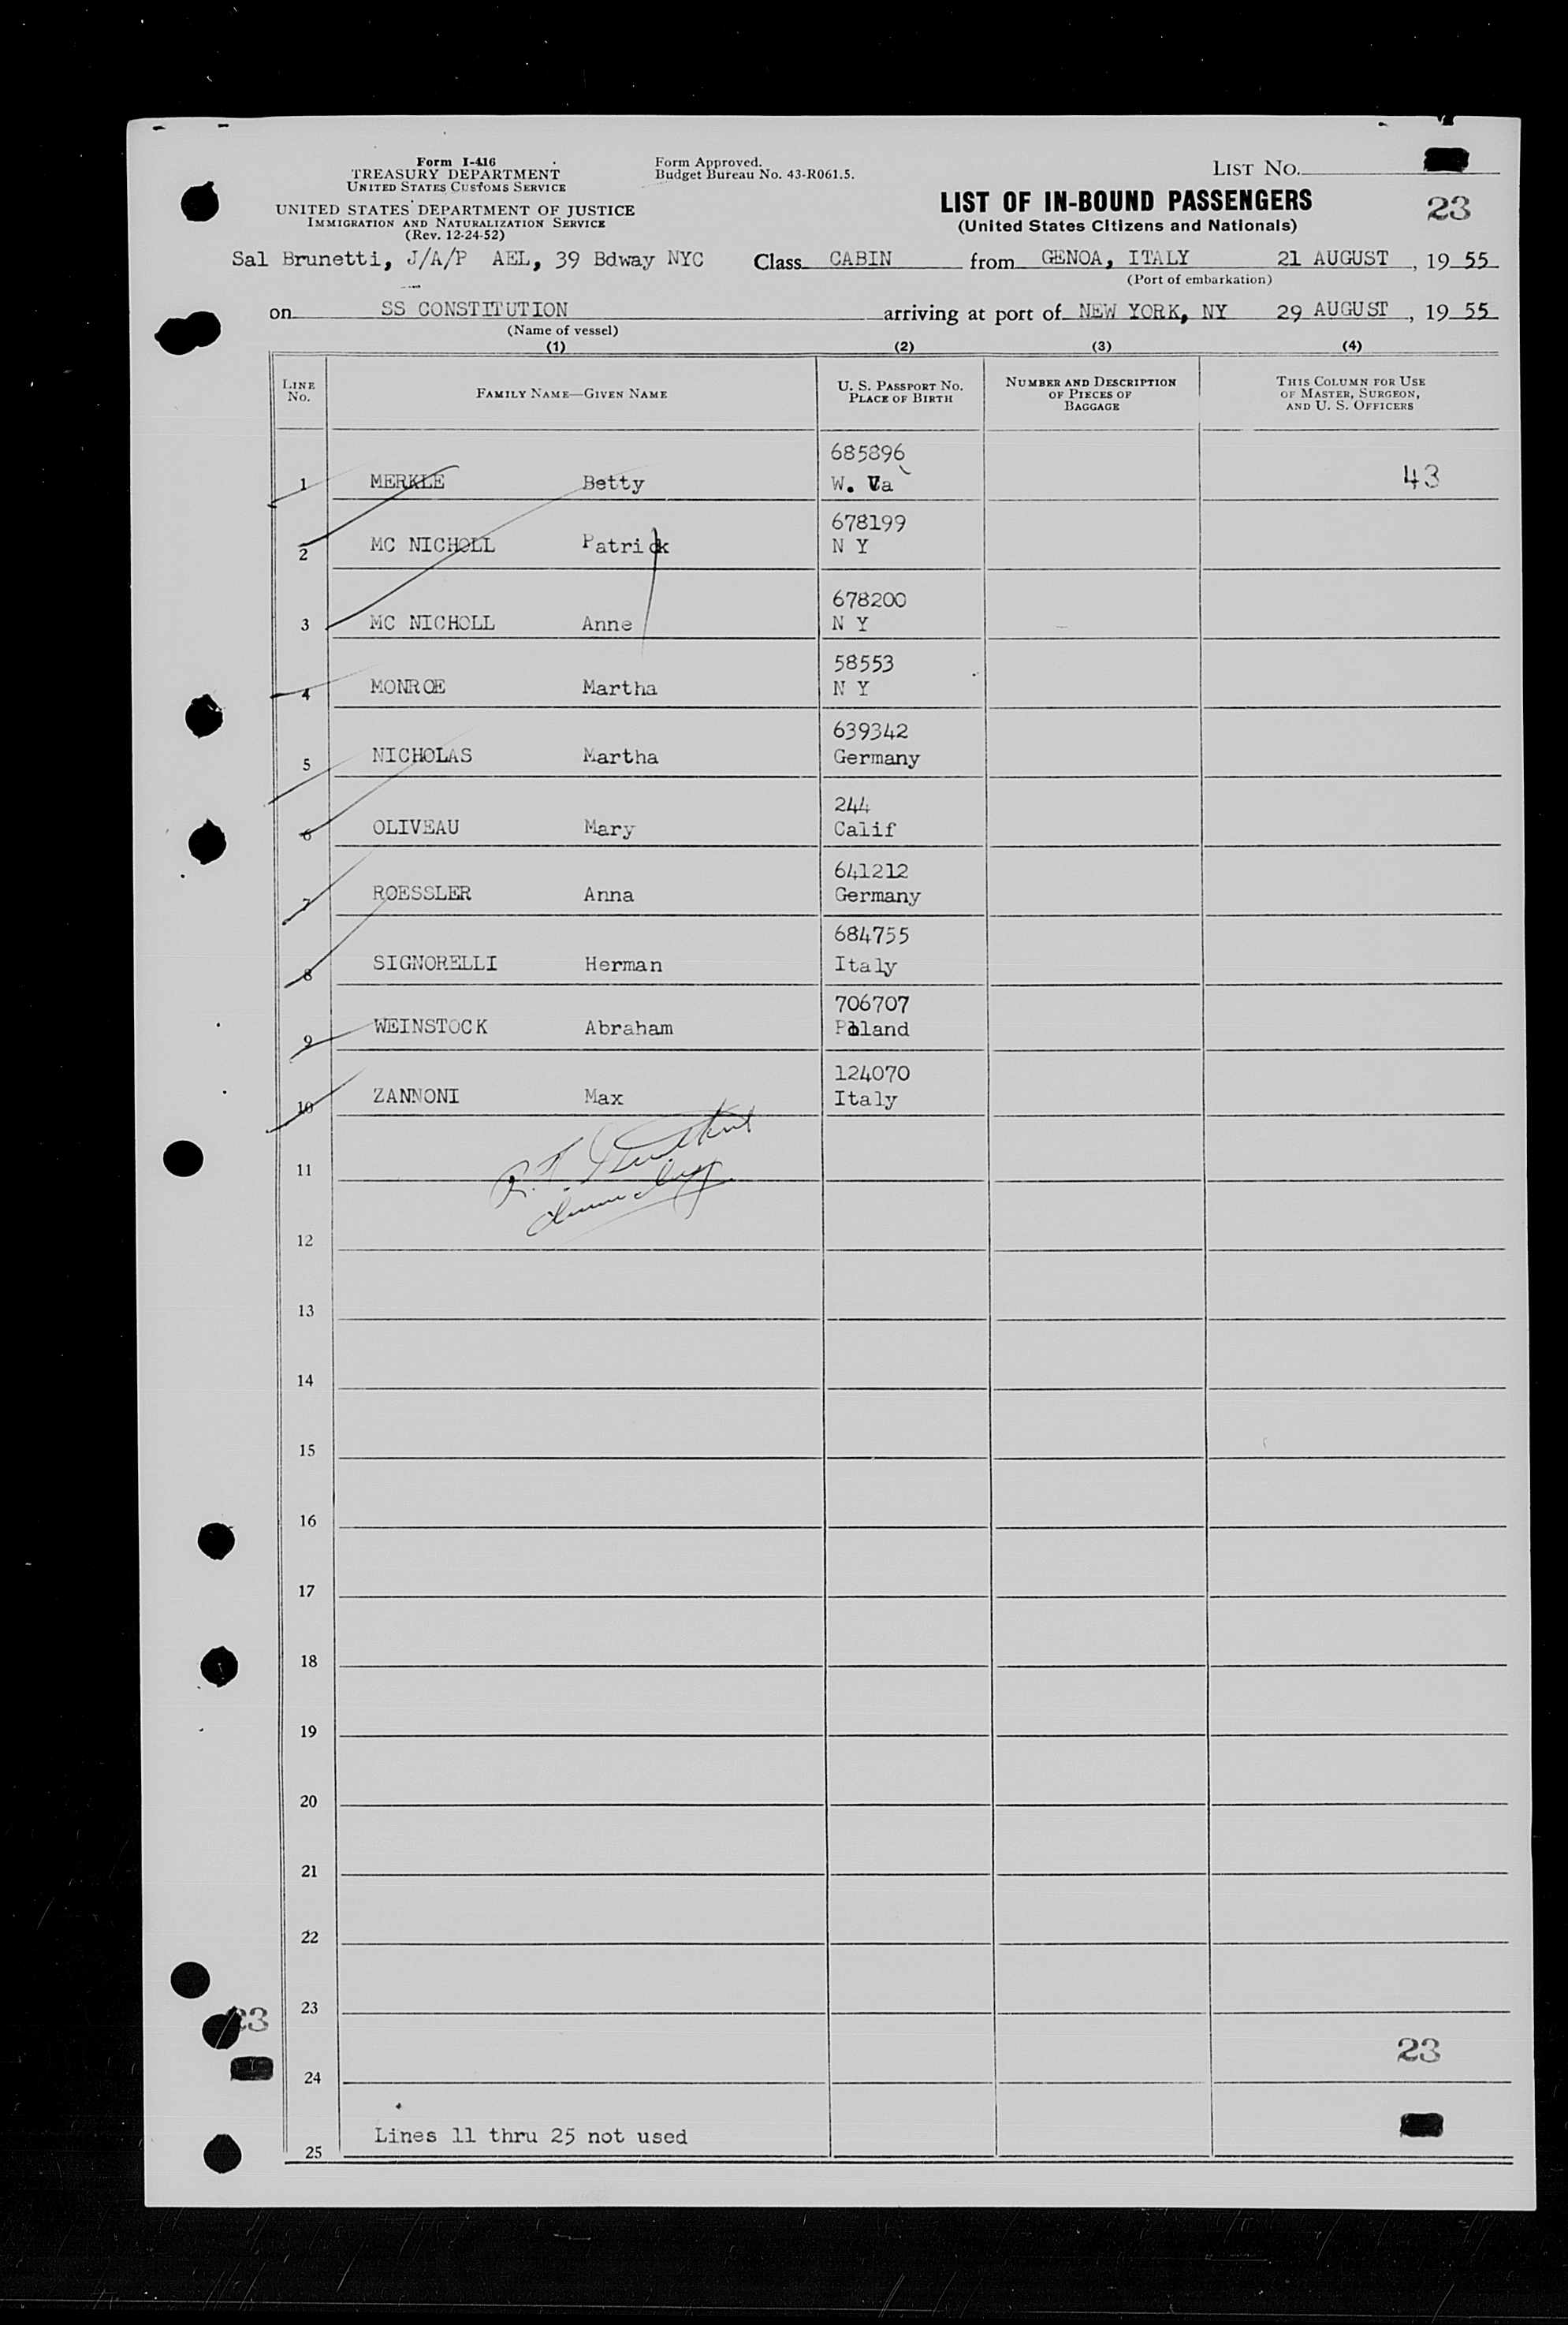 Form I-416
TREASURY DEPARTMENT
UNITED STATES CUSTOMS SERVICE
UNITED STATES DEPARTMENT OF JUSTICE
IMMIGRATION AND NATURALIZATION SERVICE
(Rev. 12-24-52)
Form Approved.
Budget Bureau No. 43-R061.5.
LIST NO.
LIST OF IN-BOUND PASSENGERS
(United States Citizens and Nationals)
23
Sal Brunetti, J/A/P AEL, 39 Bdway NYC Class CABIN from GENOA, ITALY 21 AUGUST, 19 55
(Port of embarkation)
on SS CONSTITUTION arriving at port of NEW YORK, NY 29 AUGUST, 19 55
(Name of vessel)
(1) (2) (3) (4)
LINE NO. FAMILY NAME—GIVEN NAME U. S. PASSPORT NO. PLACE OF BIRTH NUMBER AND DESCRIPTION OF PIECES OF BAGGAGE THIS COLUMN FOR USE OF MASTER, SURGEON, AND U. S. OFFICERS
685896
1 MERKLE Betty W. Va 43
678199
2 MC NICHOLL Patrick N Y
678200
3 MC NICHOLL Anne N Y
58553
4 MONROE Martha N Y
639342
5 NICHOLAS Martha Germany
244
6 OLIVEAU Mary Calif
641212
7 ROESSLER Anna Germany
684755
8 SIGNORELLI Herman Italy
706707
9 WEINSTOCK Abraham Poland
124070
10 ZANNONI Max Italy
11
12
13
14
15
16
17
18
19
20
21
22
23
23
23
24
Lines 11 thru 25 not used
25